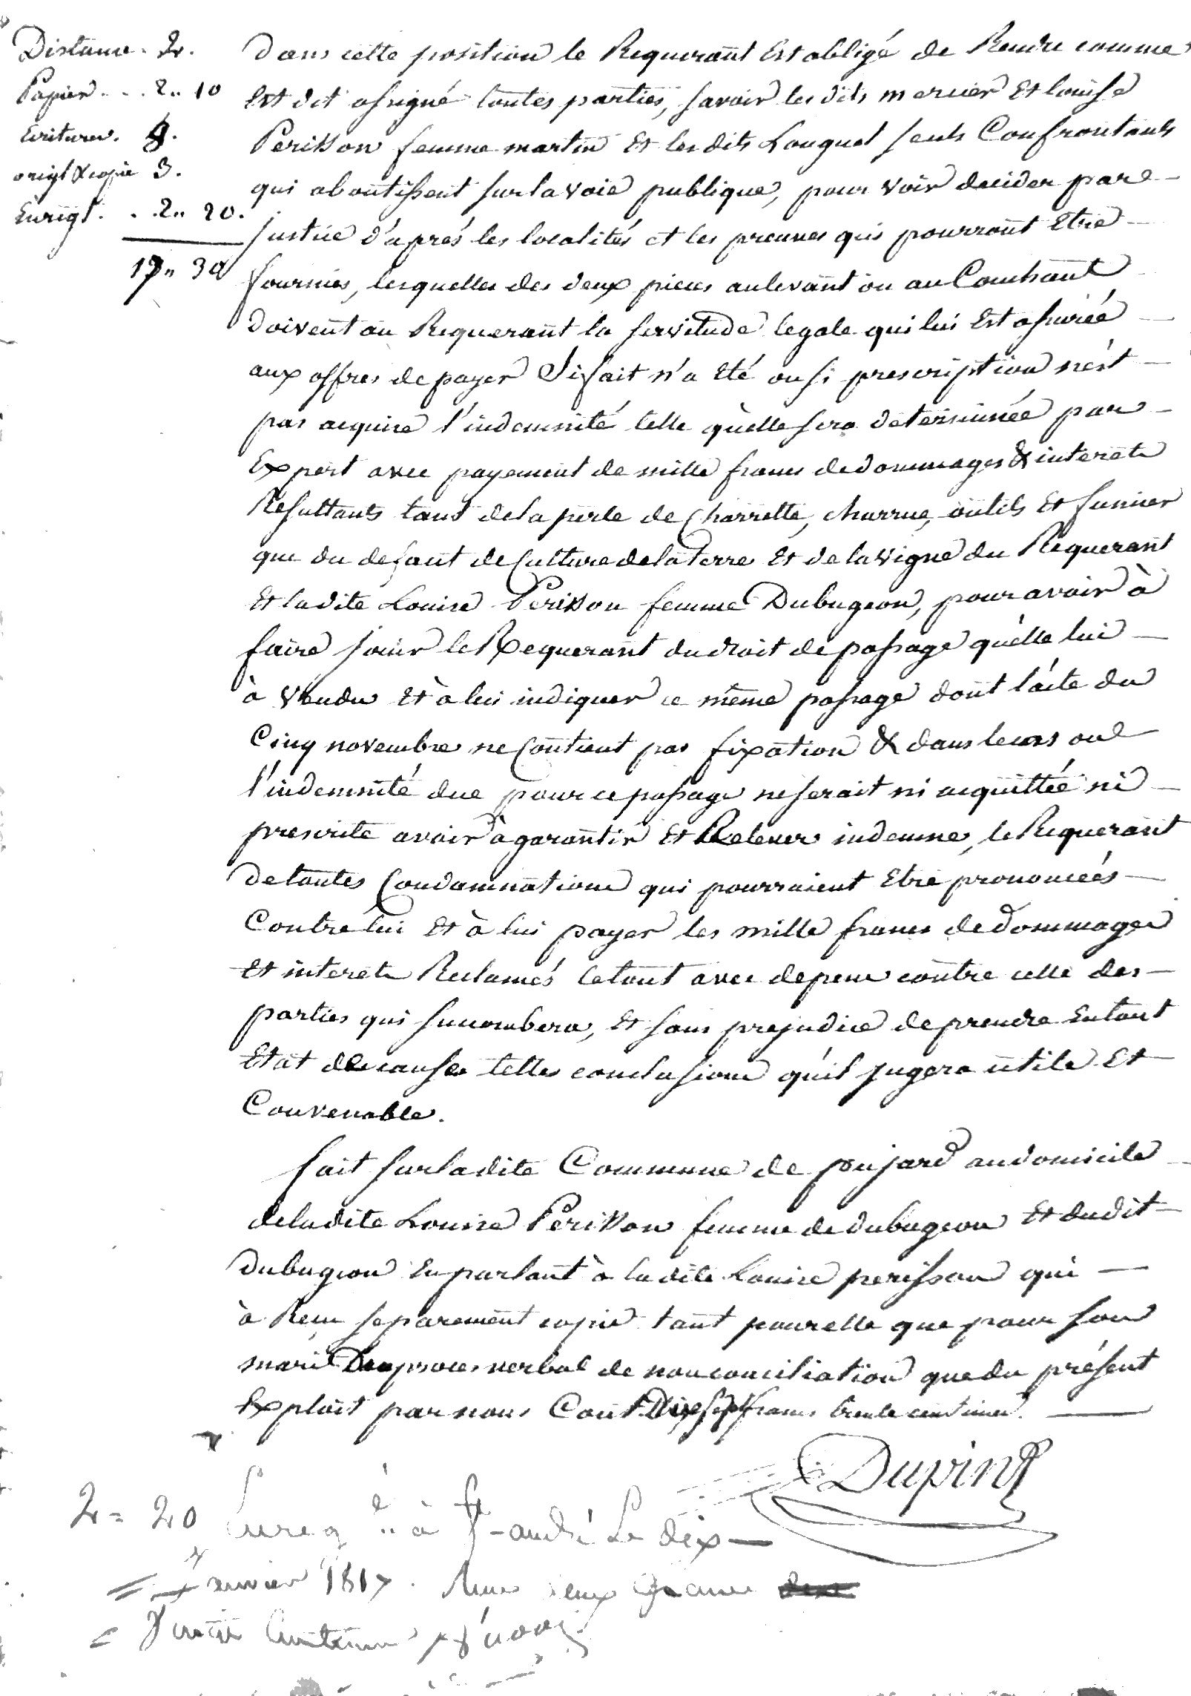 Distance . 2.
Papier . . . 2.. 10
Ecriture. 8.
origl & copie 3.
Enregt. . . 2.. 20.
17.. 30
Dans cette position le Requerant Est obligé de Rendre comme
Est dit assigné toutes parties, savoir les dits mercier Et louise
Perisson femme martin Et les dits Louquet seuls Confrontants
qui aboutissent sur la voie publique, pour voir decider par
justice d'après les localités et les preuves qui pourront Etre
fournies, lesquelles des deux pieces au levant ou au Couchant
doivent au Requerant la servitude legale qui lui Est assurée
aux offres de payer Si fait n'a Eté ou si prescription n'est
pas acquise l'indemnité telle qu'elle sera determinée par
Expert avec payement de mille francs de dommages & interets
Resultants tant de la perte de Charrette, charrue, outils Et fumier
que du defaut de Culture de la terre Et de la vigne du Requerant
Et la dite Louise Perisson femme Dubugeon, pour avoir à
faire jouir le Requerant du droit de passage qu'elle lui
à Vendu Et à lui indiquer ce même passage dont l'acte du
Cinq novembre ne Contient pas fixation & dans le cas ou
l'indemnité due pour ce passage ne serait ni acquittée ni
prescrite avoir à garantir Et Relever indemne, le Requerant
de toutes Condamnations qui pourraient Etre prononcées
Contre lui Et à lui payer les mille francs de Dommages
Et interets Reclamés le tout avec depens contre celle des
parties qui succombera, Et sans prejudice de prendre En tout
Etat de cause telles conclusions qu'il jugera utile Et
Convenable.
fait sur la dite Commune de pujard au domicile
de la dite Louise Perisson femme de dubugeon Et du dit
Dubugeon En parlant à la dite Louise perisson qui
à Recu separement copie tant pour elle que pour son
mari Du proces verbal de non conciliation que du présent
Exploit par nous Cout Dix sept francs trente centimes.
Dupin
2 = 20 Enreg à St andré Le dix
janvier 1817. Recu deux francs
vingt Centimes